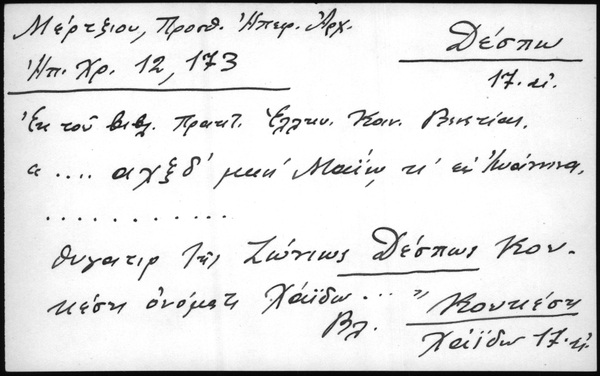 Μέρτζιου, Προσθ. Ἠπειρ. Ἀρχ.
Ἠπ. Χρ. 12, 173
Δέσπω
17. αἰ.
Ἐκ τοῦ βιβλ. Πρακτ. Ἑλλην. Κοιν. Βενετίας.
α .... αχξδ΄ μηνὶ Μαΐῳ, τι΄ εἰς Ἰωάννινα,
............
θυγατὴρ τῆς Ζώνιως Δέσπως Κου-
κέση ὀνόματι Χάϊδω ... "
Βλ. Κουκέση
Χάϊδω 17. αἰ.